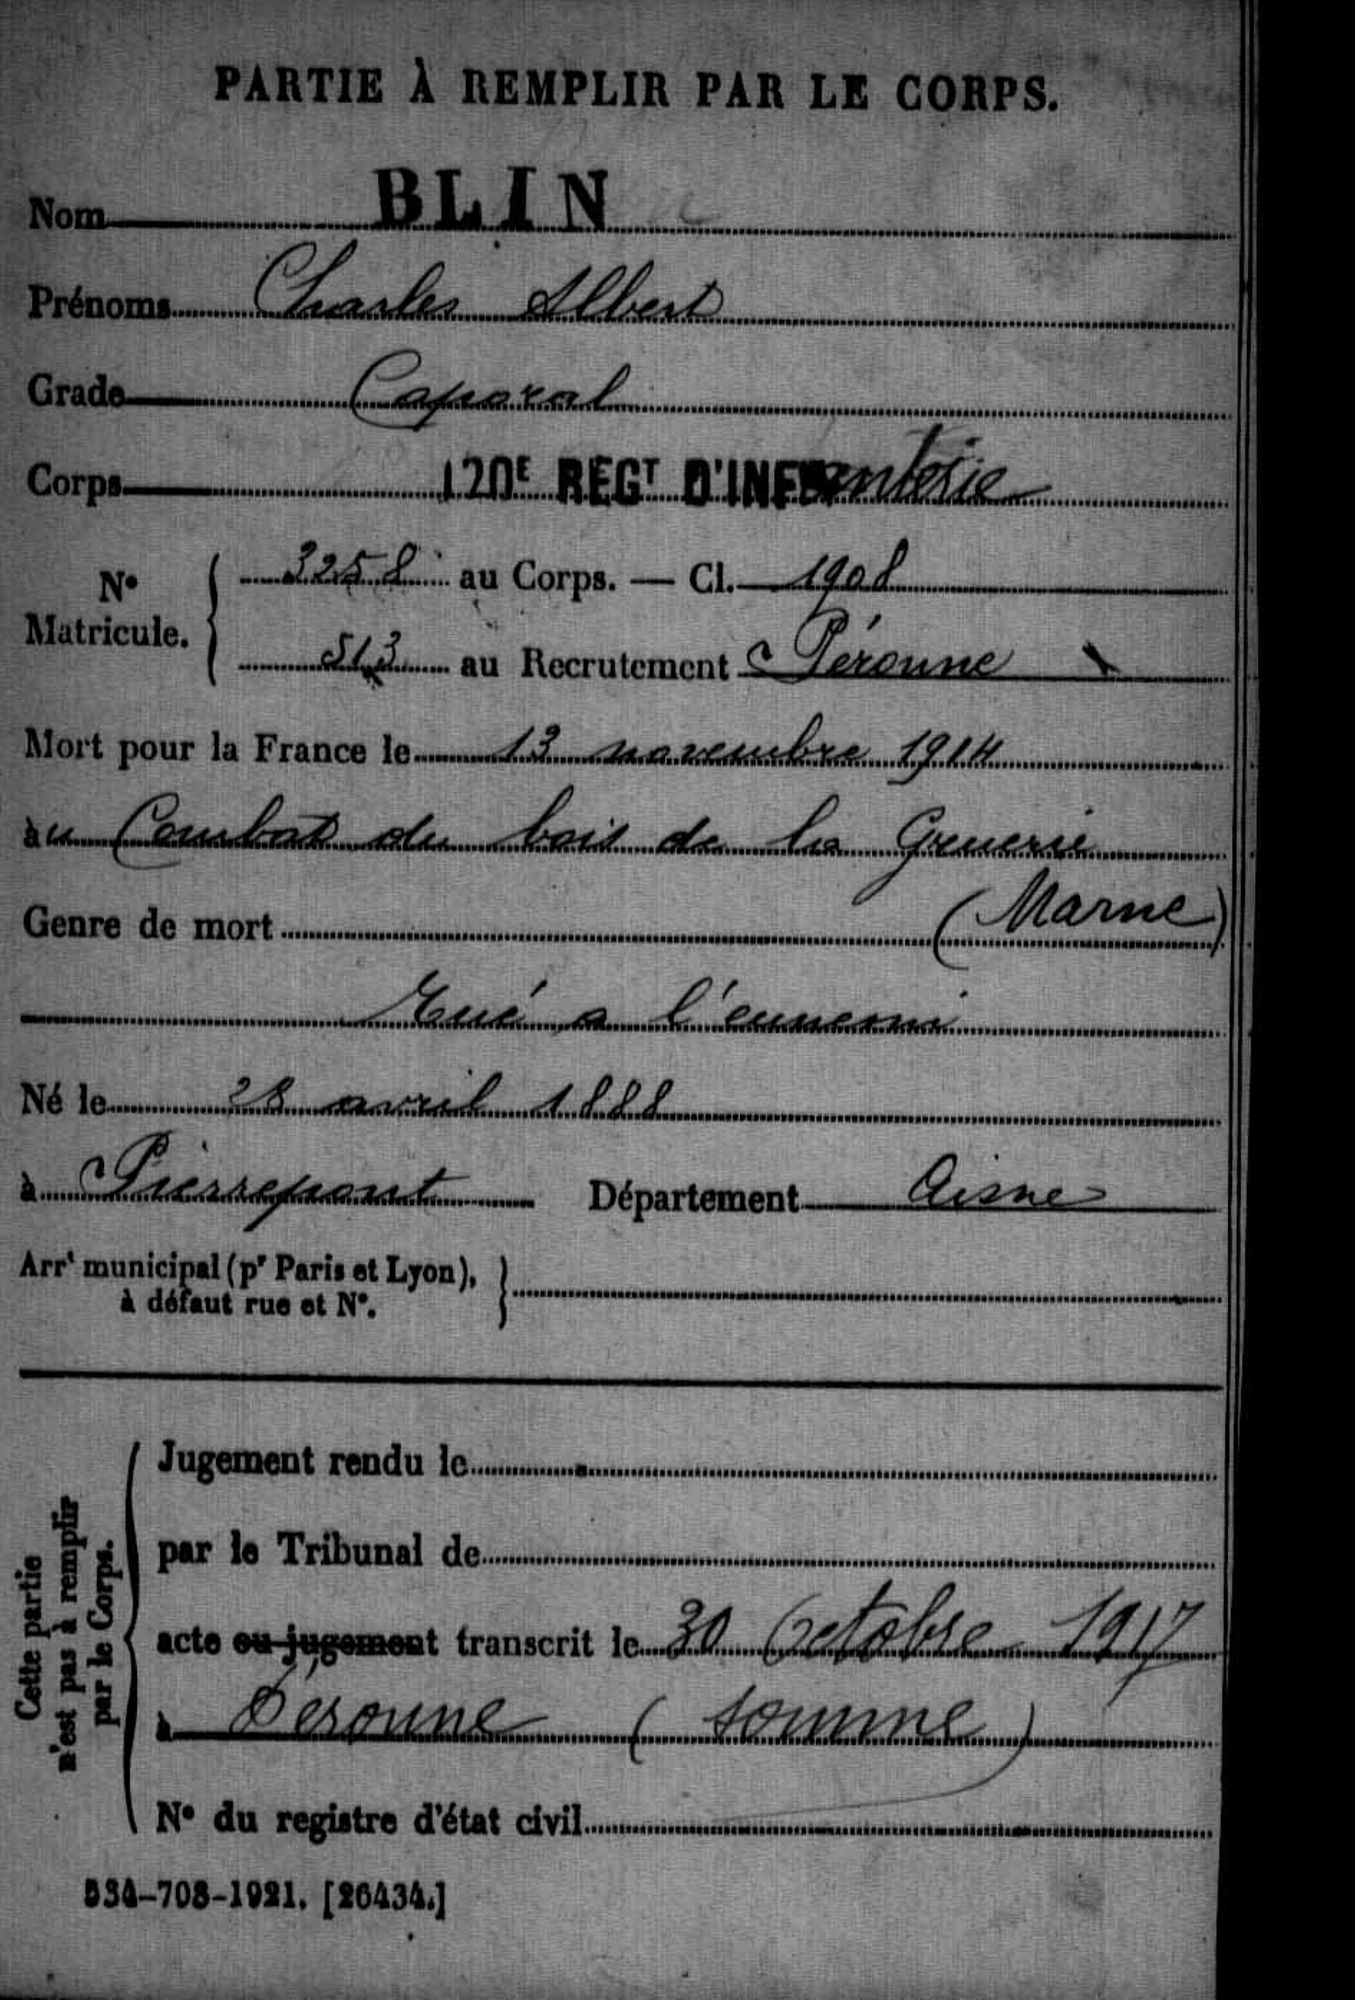 PARTIE À REMPLIR PAR LE CORPS.
Nom BLIN
Prénoms Charles Albert
Grade Caporal
Corps 120E REGT D'INFanterie
No Matricule. 3258 au Corps. — Cl. 1908
513 au Recrutement Péronne
Mort pour la France le 13 novembre 1914
au Combat du bois de la Gruerie
(Marne)
Genre de mort
Tué a l'ennemi
Né le 28 avril 1888
à Pierrepont Département Aisne
Arrt municipal (pr Paris et Lyon),
à défaut rue et No.
Cette partie
n'est pas à remplir
par le Corps.
Jugement rendu le
par le Tribunal de
acte ou jugement transcrit le 30 Octobre 1917
à Péronne (Somme)
No du registre d'état civil
534-708-1921. [26434.]